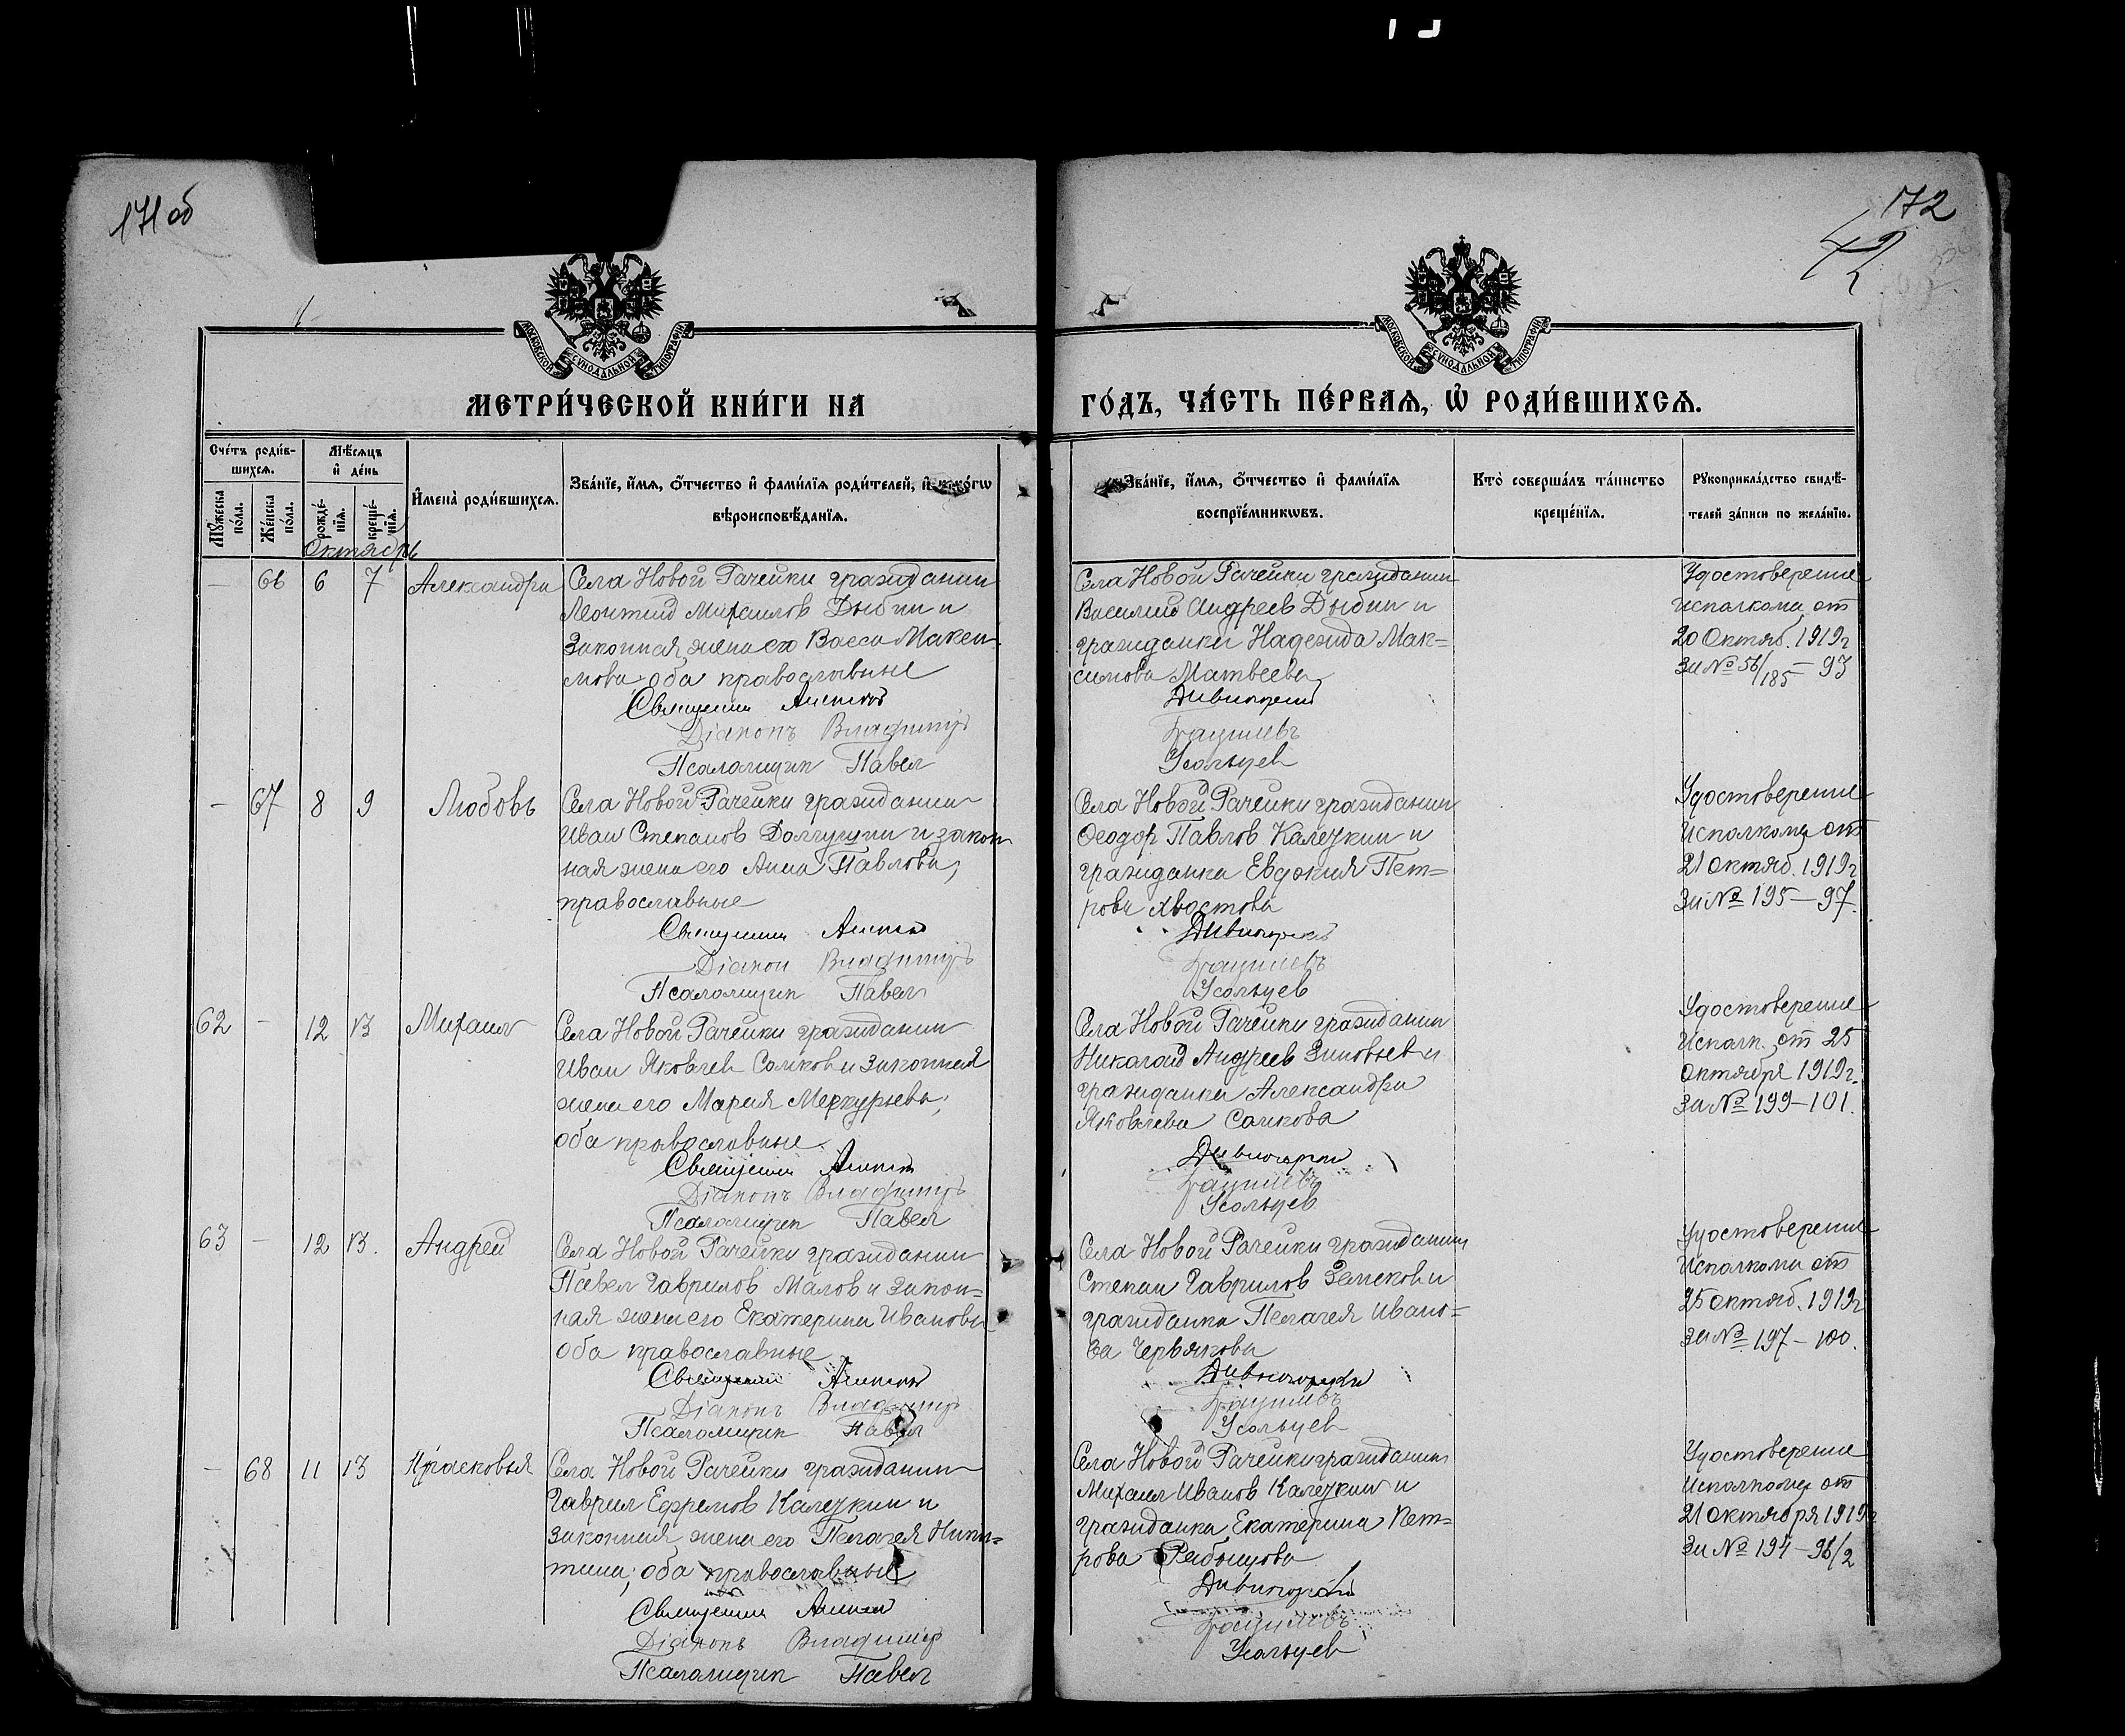 171 об
172
42
МОСКОВСКОЙ СѴНОДАЛЬНОЙ ТИПОГРАФІИ
МОСКОВСКОЙ СѴНОДАЛЬНОЙ ТИПОГРАФІИ
МЕТРИ́ЧЕСКОЙ КНИ́ГИ НА
ГО́ДЪ, ЧА́СТЬ ПЕ́РВАЯ, Ѡ҆ РОДИ́ВШИХСѦ.
Сче́тъ роди́в-
шихсѧ.
Мꙋжеска по́ла.
Же́нска по́ла.
Мѣ́сѧцъ
и҆ де́нь
рожде́-нїѧ.
креще́-нїѧ.
И҆мена̀ роди́вшихсѧ.
Зва́нїе, и҆́мѧ, ѻ҆́тчество и҆ фами́лїѧ роди́телей, и҆ како́гѡ
вѣроисповѣ́данїѧ.
Зва́нїе, и҆́мѧ, ѻ҆́тчество и҆ фами́лїѧ
воспрїе́мникѡвъ.
Кто̀ соверша́лъ та́инство
креще́нїѧ.
Рꙋкоприкла́дство свидѣ́-
телей за́писи по жела́нїю.
Октябрь
— 66 6 7 Александра
Села Новой Рачейки гражданин
Леонтий Михаилов Дыбин и
законная жена его Васса Макси-
мова оба православные
Священник Алексий
Діаконъ Владимир
Псаломщик Павел
Села Новой Рачейки гражданин
Василий Андреев Дыбин и
гражданка Надежда Мак=
симова Матвеева
Дивногорский
Усольцев
Удостоверение
исполкома от
20 Октяб. 1919г
за № 56/185 – 93
— 67 8 9 Любовь
Села Новой Рачейки гражданин
Иван Степанов Долгушин и закон
ная жена его Анна Павлова,
православные
Священник Алексий
Діакон Владимир
Псаломщик Павел
Села Новой Рачейки гражданин
Феодор Павлов Калезкин и
гражданка Евдокия Пет=
рова Хвостова
Дивногорский
Усольцев
Удостоверение
исполкома от
21 октяб. 1919г
за № 195 – 97.
62 — 12 13 Михаил
Села Новой Рачейки гражданин
Иван Яковлев Сомков и законная
жена его Мария Меркурьева;
оба православные
Священник Алексий
Діаконъ Владимир
Псаломщик Павел
Села Новой Рачейки гражданин
Николай Андреев Зиновьев и
гражданка Александра
Яковлева Сомкова
Дивногорский
Усольцев
Удостоверение
Исполк. от 25
октября 1919г.
за № 199–101.
63 — 12 13. Андрей
Села Новой Рачейки гражданин
Павел Гаврилов Малов и закон=
ная жена его Екатерина Иванова
оба православные
Священник Алексий
Діаконъ Владимир
Псаломщик Павел
Села Новой Рачейки гражданин
Степан Гаврилов Земсков и
гражданка Пелагея Ивано=
ва Червякова
Дивногорский
Усольцев
Удостоверение
исполкома от
25 октяб. 1919г
за № 197 – 100.
— 68 11 13 Прасковья
Села Новой Рачейки гражданин
Гаврил Ефремов Калезкин и
законная жена его Пелагея Ники=
тина; оба православные
Священник Алексий
Діаконъ Владимир
Псаломщик Павел
Села Новой Рачейки гражданин
Михаил Иванов Калезкин и
гражданка Екатерина Пет=
рова Рябышова
Дивногорский
Усольцев
Удостоверение
исполкома от
21 октября 1919г
за № 194 – 96/2